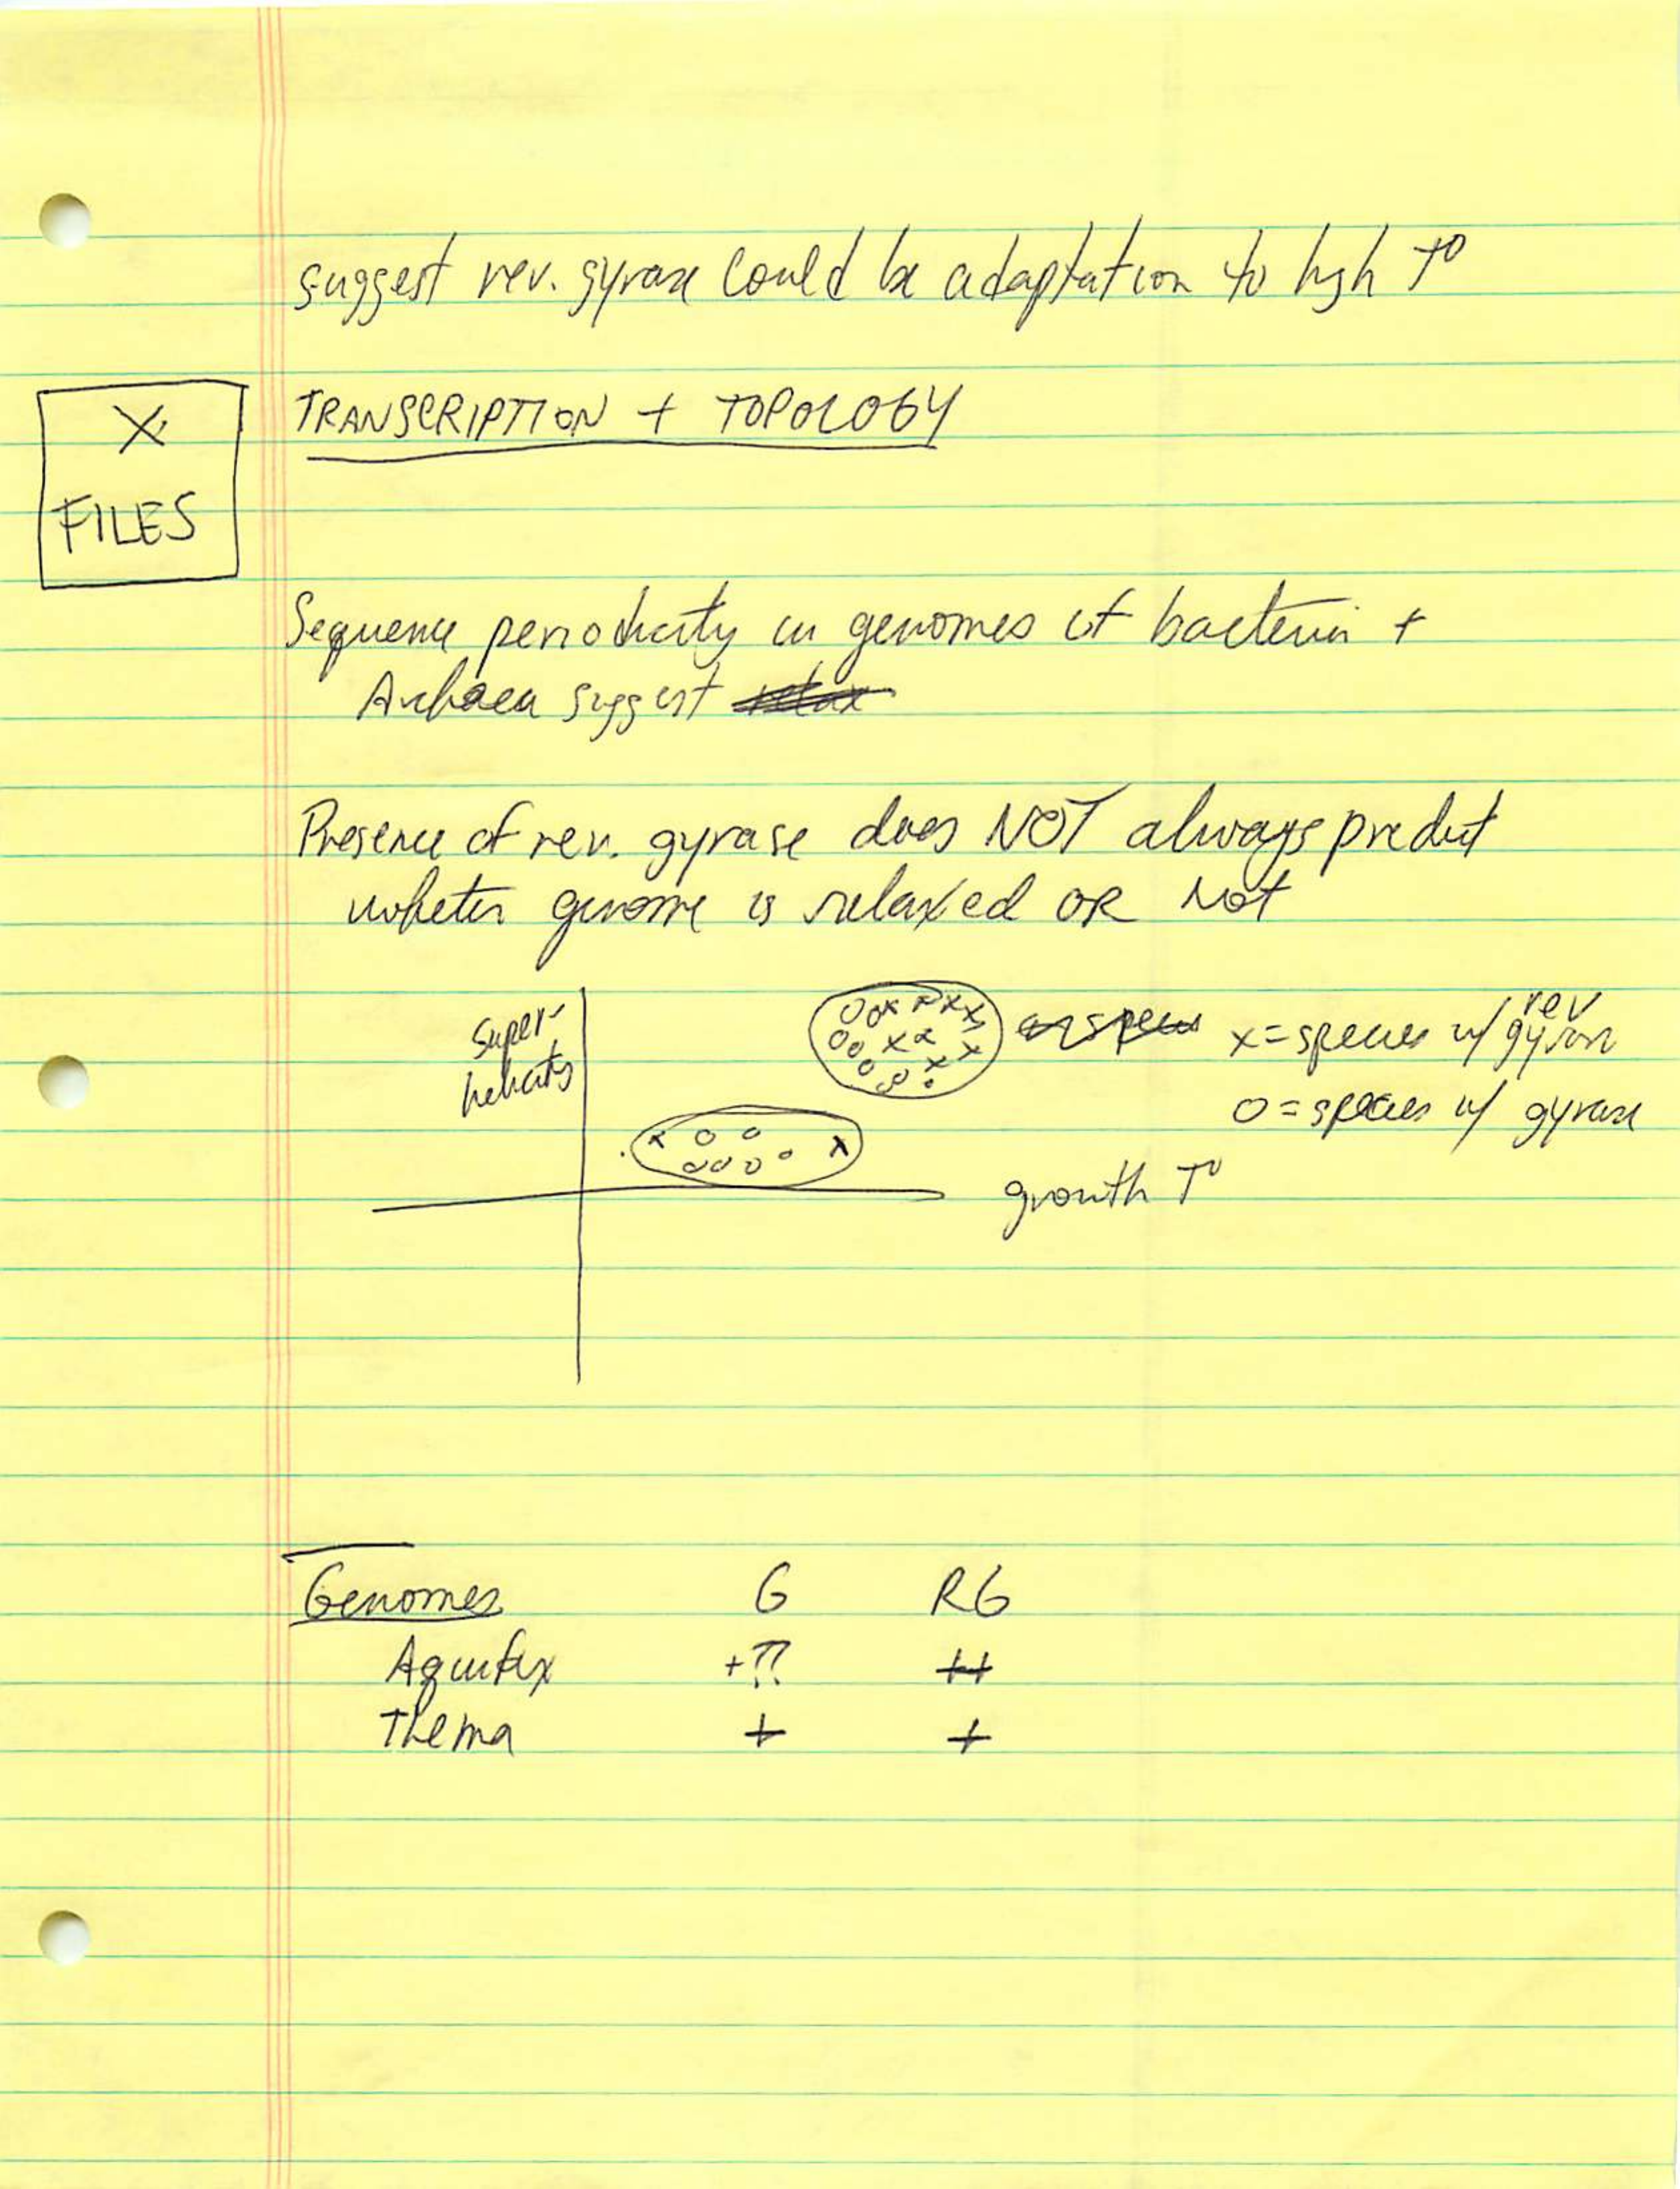 suggest rev. gyrase could be adaptation to high T°
X
FILES
TRANSCRIPTION + TOPOLOGY
Sequence periodicity in genomes of bacteria +
Archaea suggest
Presence of rev. gyrase does NOT always predict
whether genome is relaxed OR Not
Super-
helicity
x = species w/ rev gyrase
o = species w/ gyrase
growth T°
Genomes G RG
Aquifex +?? ++
Thema + +